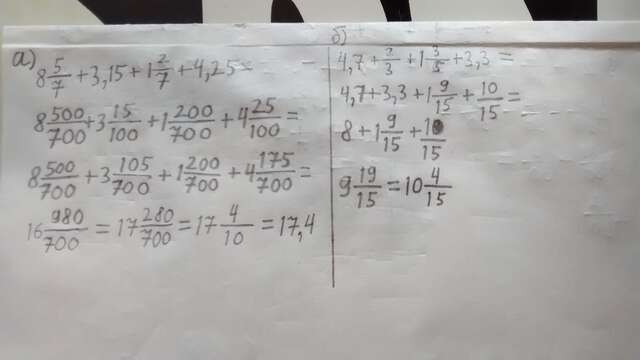 а)
8 5/7 + 3,15 + 1 2/7 + 4,25 =
8 500/700 + 3 15/100 + 1 200/700 + 4 25/100 =
8 500/700 + 3 105/700 + 1 200/700 + 4 175/700 =
16 980/700 = 17 280/700 = 17 4/10 = 17,4
б)
4,7 + 2/3 + 1 3/5 + 3,3 =
4,7 + 3,3 + 1 9/15 + 10/15 =
8 + 1 9/15 + 10/15
9 19/15 = 10 4/15